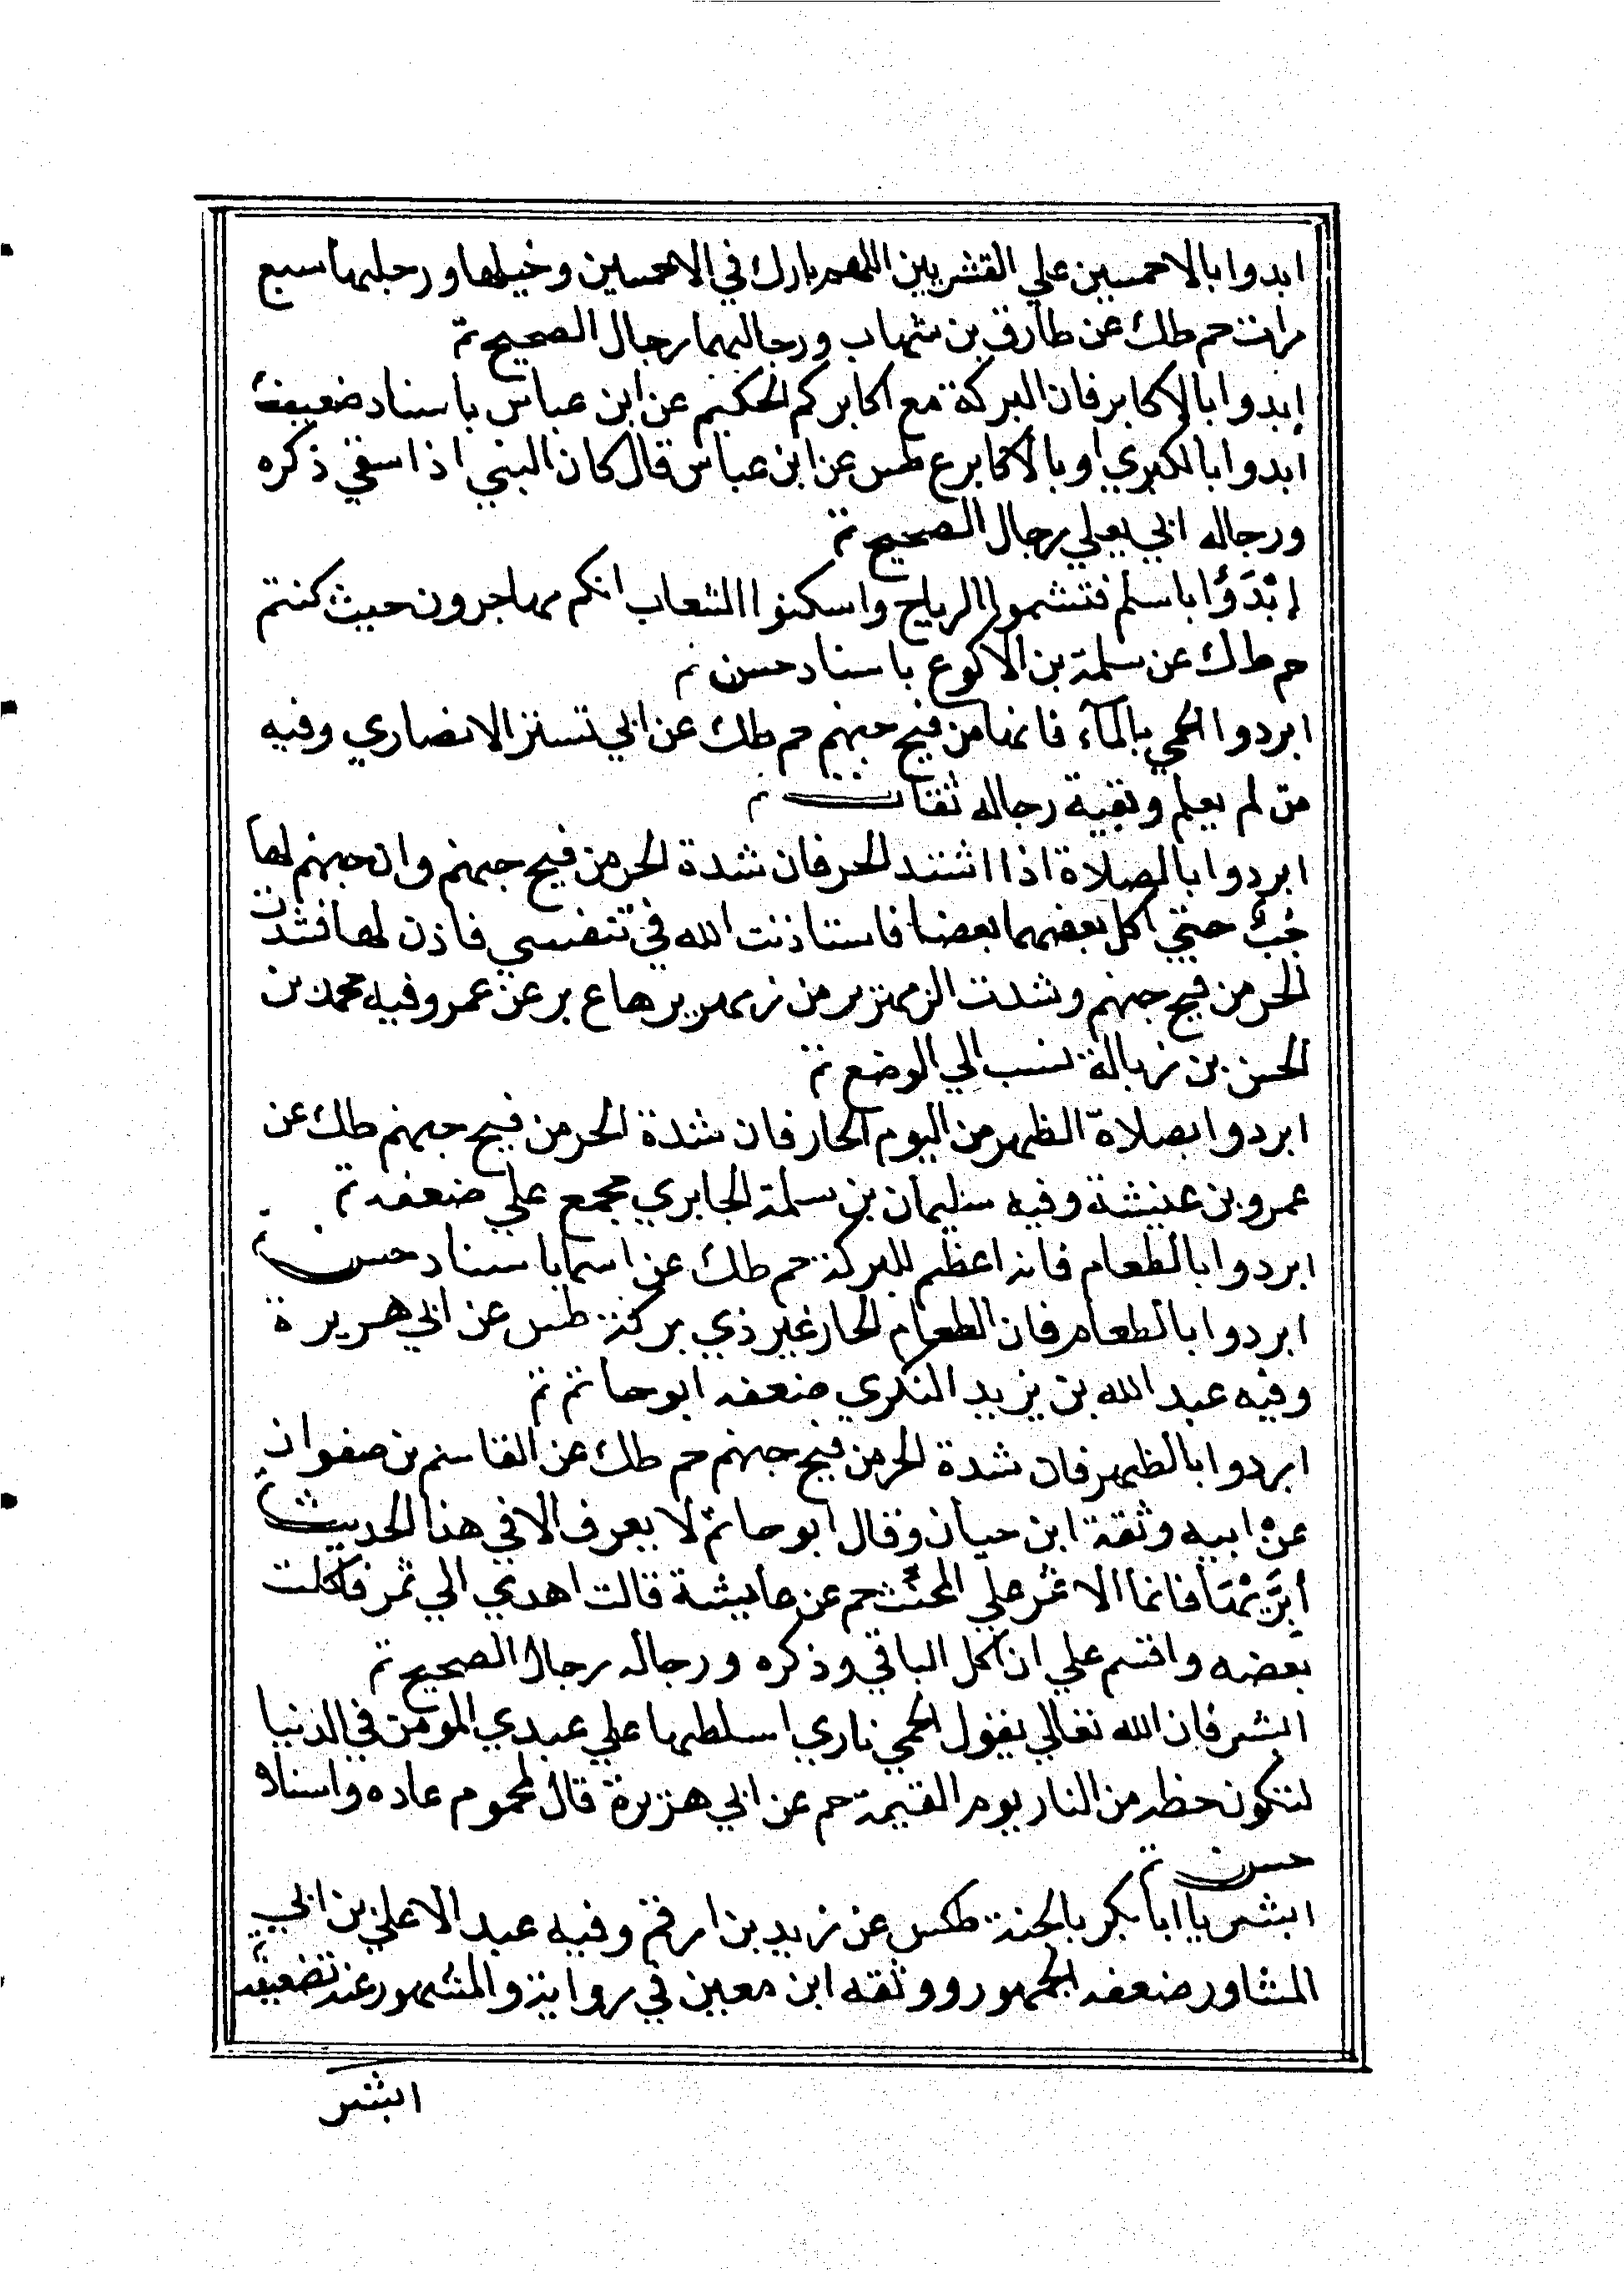 ابدوا بالاحمسين علي القشريين اللهم بارك في الاحمسين وخيلها ورجلها سبع
مرات حم طك عن طارق بن شهاب ورجالهما رجال الصحيح تم
إبدوا بالاكابر فان البركة مع اكابركم الحكيم عن ابن عباس باسناد ضعيف
ابدوا بالكبري او بالاكابر ع طس عن ابن عباس قال كان النبي اذا سقي ذكره
ورجاله ابي يعلي رجال الصحيح تم
إبْدَؤُا باسلم فتنشموا الرياح واسكنوا الشعاب انكم مهاجرون حيث كنتم
حم طك عن سلمة بن الاكوع باسناد حسن تم
ابردوا الحمي بالمآء فانها من فيح جهنم حم طك عن ابي تستنز الانصاري وفيه
من لم يعلم وبقية رجاله ثقات تم
ابردوا بالصلاة اذا اشتد الحر فان شدة الحر من فيح جهنم وان جهنم لها
جُبٌّ حتي اكل بعضهما بعضا فاستاذنت الله في تنفسي فاذن لها فشدت
الحر من فيح جهنم وشدت الزمهرير من زمهريرها ع بر عن عمر وفيه محمد بن
الحسن بن زبالة نسب الي الوضع تم
ابردوا بصلاة الظهر من اليوم الحار فان شدة الحر من فيح جهنم طك عن
عمرو بن عنبشة وفيه سليمان بن سلمة الجابري مجمع علي ضعفه تم
ابردوا بالطعام فانه اعظم للبركة حم طك عن اسما باسناد حسن تم
ابردوا بالطعام فان الطعام الحار غير ذي بركة طس عن ابي هريرة
وفيه عبد الله بن يزيد البكري ضعفه ابو حاتم تم
ابردوا بالظهر فان شدة الحر من فيح جهنم حم طك عن القاسم بن صفوان
عن ابيه وثقة ابن حيان وقال ابو حاتم لا يعرف الا في هذا الحديث تم
أبَرِّيْهَا فانما الاثم علي المحنّث حم عن عايشة قالت اهدي الي تمر فاكلت
بعضه واقسم علي ان اكل الباقي وذكره ورجاله رجال الصحيح تم
ابشر فان الله تعالي يقول الحمي ناري اسلطها علي عبدي المومن في الدنيا
لتكون حظه من النار يوم القيمة حم عن ابي هريرة قال لمحموم عاده واسناده
حسن تم
ابشر يا ابا بكر بالجنة طكس عن زيد بن ارقم وفيه عبد الاعلي بن ابي
المشاور ضعفه الجمهور ووثقه ابن معين في رواية والمشهور عنه تضعيفه
ابشر